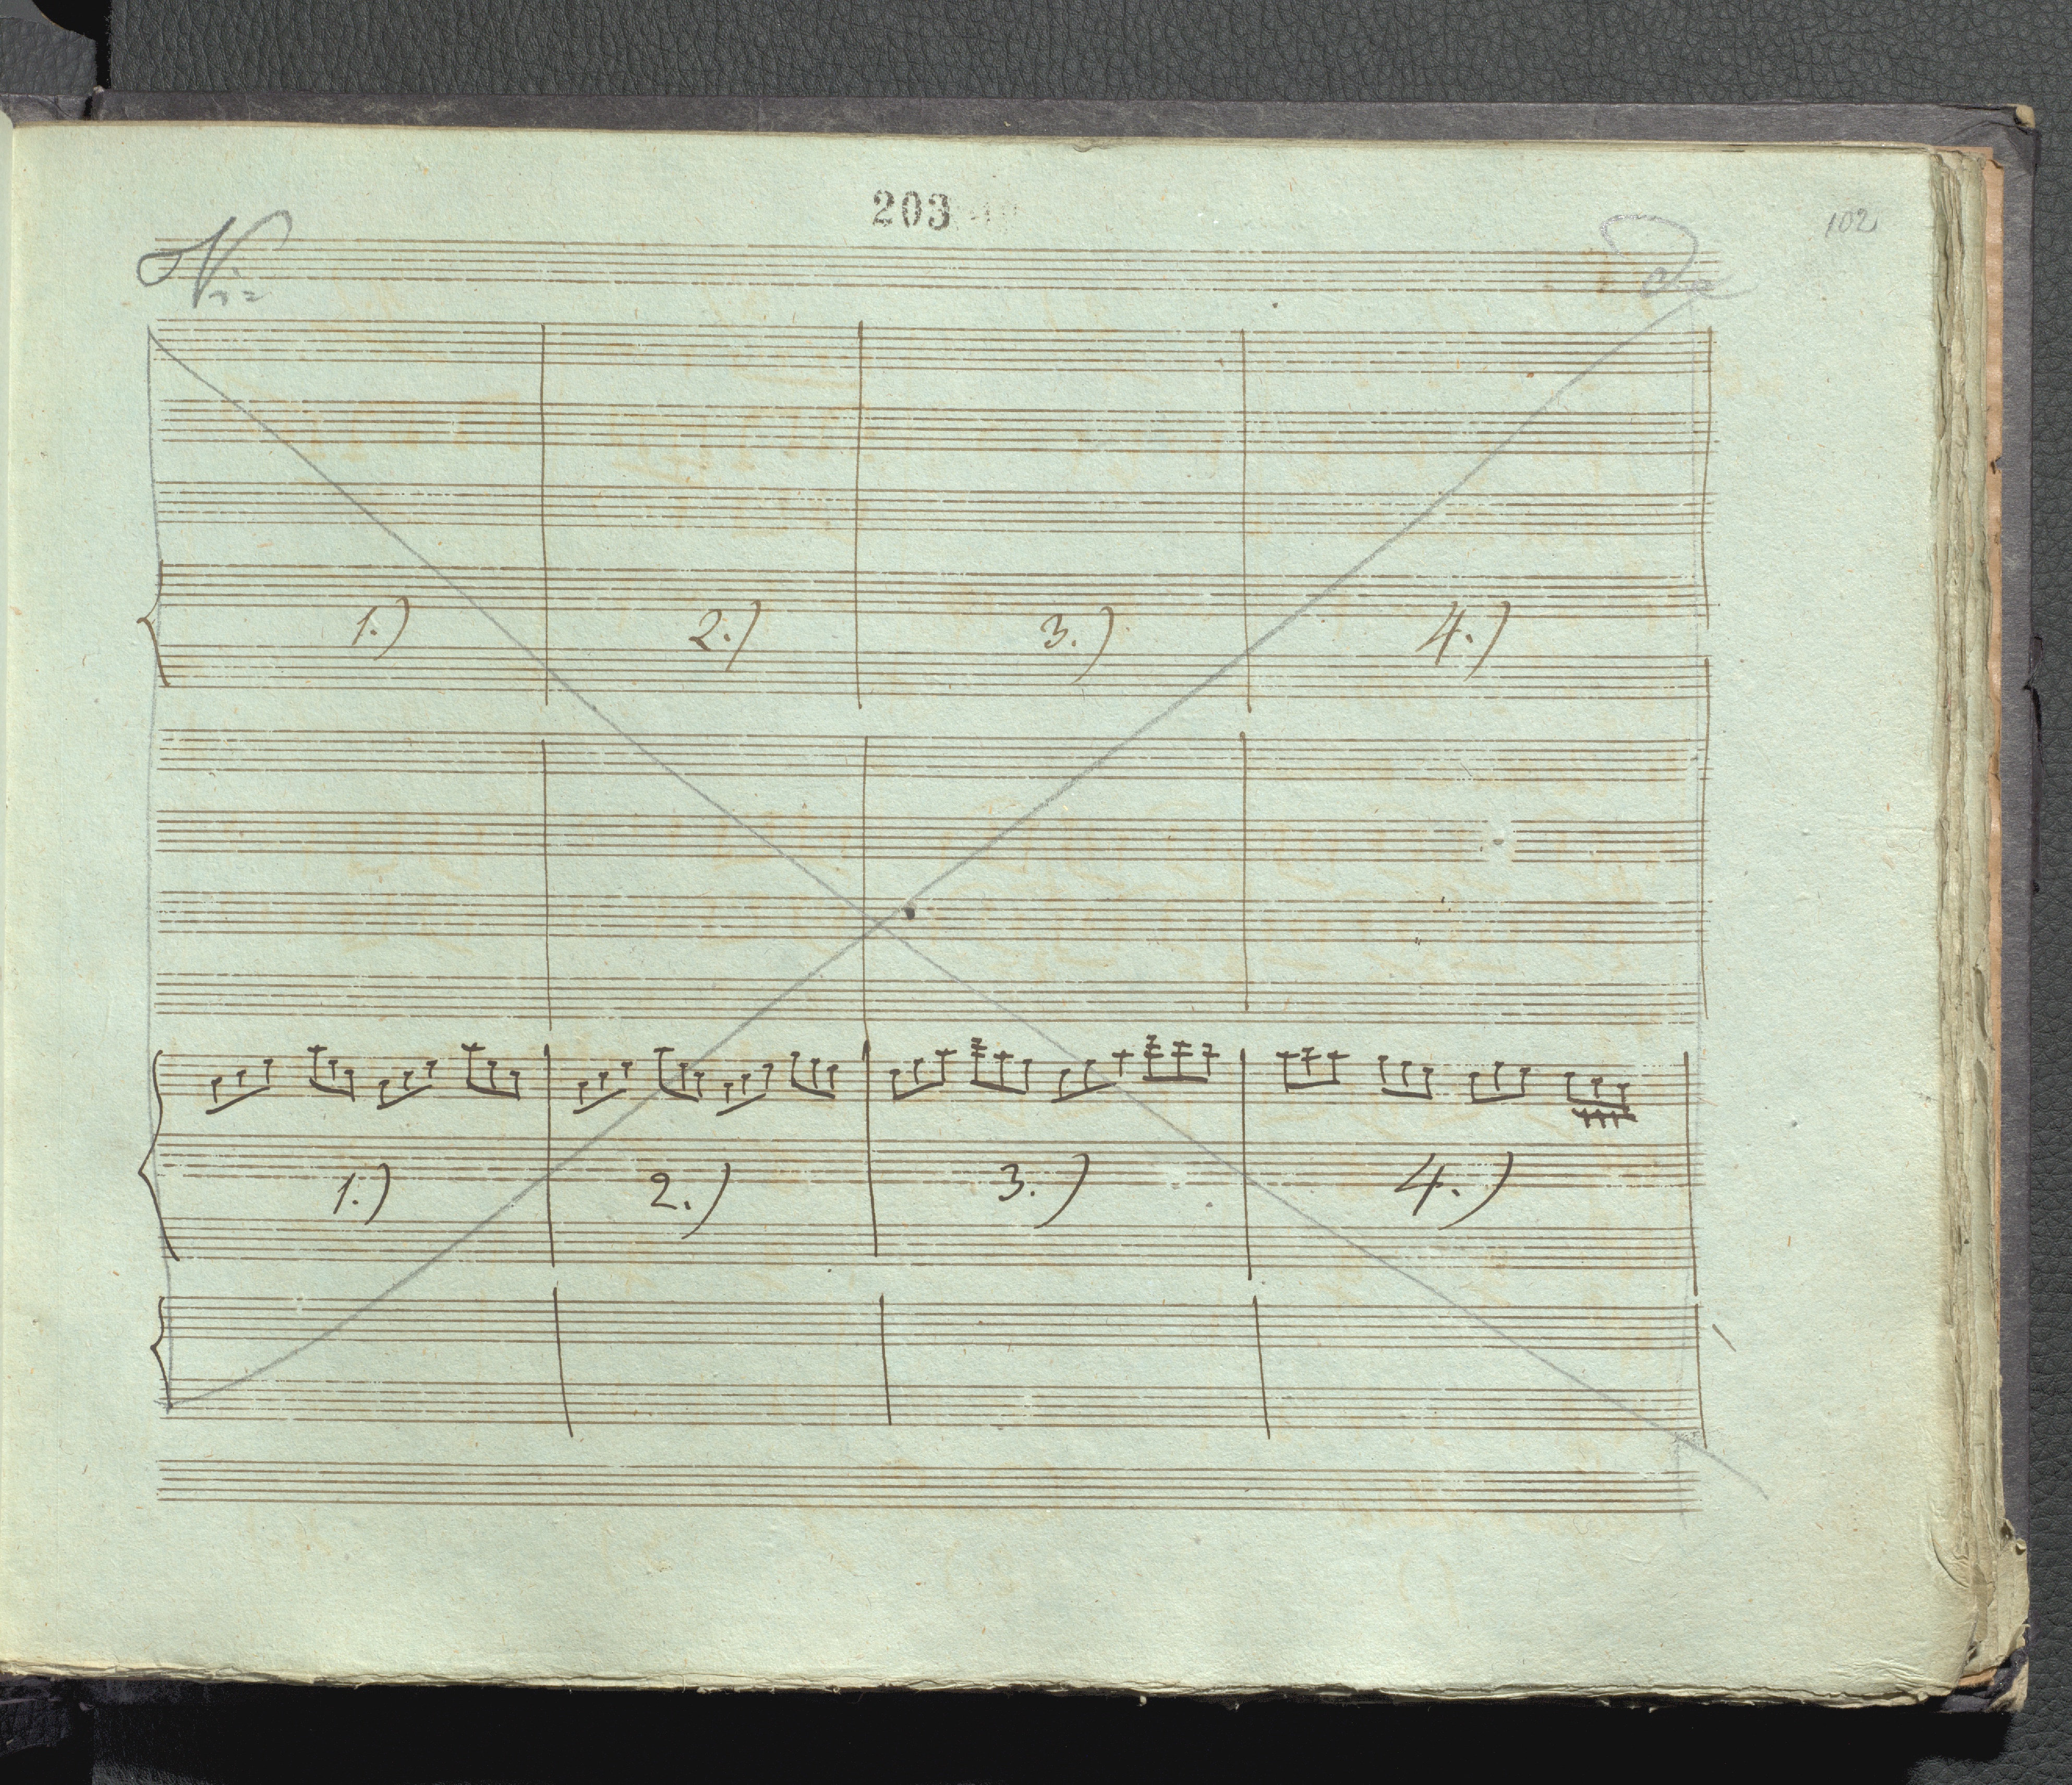 203
102
Vi=
de
1.) 2.) 3.) 4.)
1.) 2.) 3.) 4.)